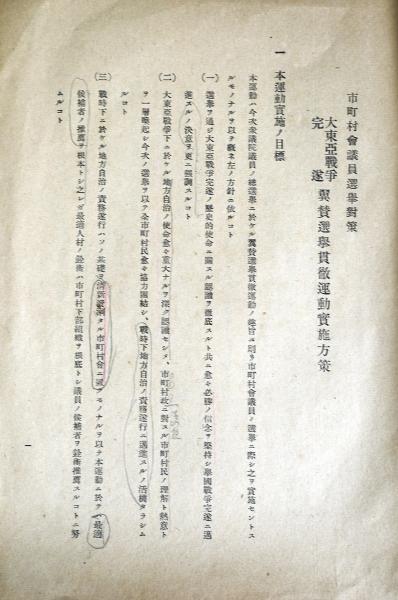 市町村會議員選擧對策
大東亞戰爭完遂翼贊選擧貫徹運動實施方策
一 本運動實施ノ目標
本運動ハ今次衆議院議員ノ總選擧ニ於ケル翼贊選擧貫徹運動ノ趣旨ニ則リ市町村會議員ノ選擧ニ際シ之ヲ實施セントス
ルモノナルヲ以テ概ネ左ノ方針ニ依ルコト
(一) 選擧ヲ通ジ大東亞戰爭完遂ノ歷史的使命ニ關スル認識ヲ徹底スルト共ニ愈々必勝ノ信念ヲ堅持シ擧國戰爭完遂ニ邁
進スルノ決意ヲ更ニ强調スルコト
(二) 大東亞戰爭下ニ於ケル地方自治ノ使命愈々重大ナルヲ深ク認識セシメ、市町村政ニ對スル市町村民ノ理解ト熱意ト
ヲ一層喚起シ今次ノ選擧ヲ以テ全市町村民愈々協力團結シ、戰時下地方自治ノ責務遂行ニ邁進スルノ活機タラシム
ルコト
(三) 戰時下ニ於ケル地方自治ノ責務遂行ハソノ基礎ヲ淸新溌溂タル市町村會ニ置クモノナルヲ以テ本運動ニ於テハ最適
候補者ノ推薦ヲ根本トシ之レガ最適人材ノ銓衡ハ市町村下部組織ヲ根底トシ議員ノ候補者ヲ銓衡推薦スルコトニ努
ムルコト
一